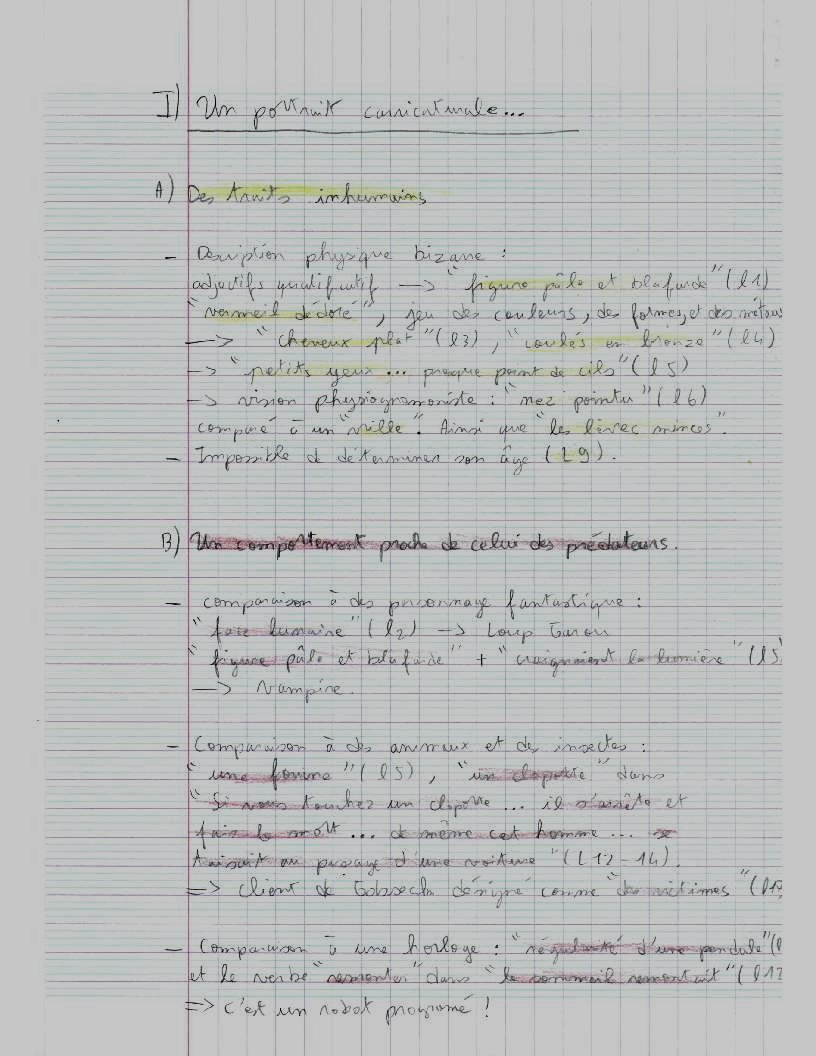 I) Un portrait carricaturale...
A) Des traits inhumains
- Description physique bizare :
adjectifs qualificatif —> "figure pâle et blafarde" (l1)
"vermeil dédoré", jeu des couleurs, des formes, et des métaux
—> "cheveux plat" (l3), "coulés en bronze" (l4)
-> "petits yeux ... presque point de cils" (l5)
-> vision physiogramoniste : "nez pointu" (l6)
comparé à un "vrille". Ainsi que "les lèvres minces".
- Impossible de déterminer son âge (L9).
B) Un comportement proche de celui des prédateurs.
- comparaison à des personnage fantastique :
"face lunaire" (l2) —> Loup Garou
"figure pâle et blafarde" + "craignaient la lumière" (l5
—> Vampire.
- Comparaison à des animaux et des insectes :
"une fouine" (l5), "un cloporte" dans
"Si vous touchez un cloporte ... il s'arrête et
fais le mort ... de même cet homme ...
taisait au passage d'une voiture" (L12-14).
=> client de Gobseck désigné comme "des victimes" (l19
- Comparaison à une horloge : "régularité d'une pendule" (l
et le verbe "remonter" dans "le sommeil remontait" (l12
=> C'est un robot programé !